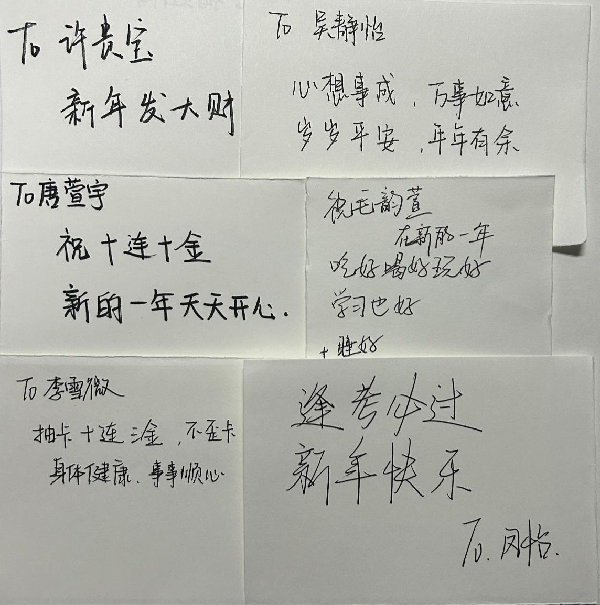 To 许贵宝
新年发大财
To 吴静怡
心想事成，万事如意
岁岁平安，年年有余
To唐萱宇
祝十连十金
新的一年天天开心.
祝毛韵萱
在新的一年
吃好喝好玩好
学习也好
+睡好
To 李雪微
抽卡十连三金，不歪卡
身体健康、事事顺心
逢考必过
新年快乐
To. 凤怡.